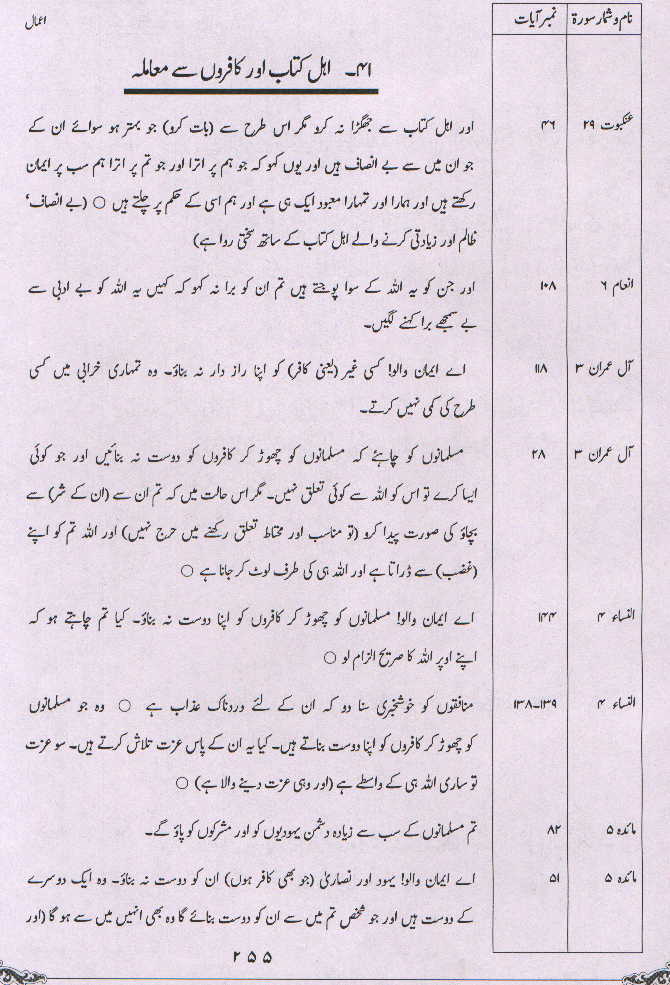 نام و شمار سورۃ نمبر آیات اعمال
۴۱۔ اہل کتاب اور کافروں سے معاملہ
عنکبوت ۲۹ ۴۶ اور اہل کتاب سے جھگڑا نہ کرو مگر اس طرح سے (بات کرو) جو بہتر ہو سوائے ان کے
جو ان میں سے بے انصاف ہیں اور یوں کہو کہ جو ہم پر اترا اور جو تم پر اترا ہم سب پر ایمان
رکھتے ہیں اور ہمارا اور تمہارا معبود ایک ہی ہے اور ہم اسی کے حکم پر چلتے ہیں ○ (بے انصاف‘
ظالم اور زیادتی کرنے والے اہل کتاب کے ساتھ سختی روا ہے)
انعام ۶ ۱۰۸ اور جن کو یہ اللہ کے سوا پوجتے ہیں تم ان کو برا نہ کہو کہ کہیں یہ اللہ کو بے ادبی سے
بے سمجھے برا کہنے لگیں۔
آل عمران ۳ ۱۱۸ اے ایمان والو! کسی غیر (یعنی کافر) کو اپنا راز دار نہ بناؤ۔ وہ تمہاری خرابی میں کسی
طرح کی کمی نہیں کرتے۔
آل عمران ۳ ۲۸ مسلمانوں کو چاہئے کہ مسلمانوں کو چھوڑ کر کافروں کو دوست نہ بنائیں اور جو کوئی
ایسا کرے تو اس کو اللہ سے کوئی تعلق نہیں۔ مگر اس حالت میں کہ تم ان سے (ان کے شر) سے
بچاؤ کی صورت پیدا کرو (تو مناسب اور محتاط تعلق رکھنے میں حرج نہیں) اور اللہ تم کو اپنے
(غضب) سے ڈراتا ہے اور اللہ ہی کی طرف لوٹ کر جانا ہے ○
النساء ۴ ۱۴۴ اے ایمان والو! مسلمانوں کو چھوڑ کر کافروں کو اپنا دوست نہ بناؤ۔ کیا تم چاہتے ہو کہ
اپنے اوپر اللہ کا صریح الزام لو ○
النساء ۴ ۱۳۸۔۱۳۹ منافقوں کو خوشخبری سنا دو کہ ان کے لئے دردناک عذاب ہے ○ وہ جو مسلمانوں
کو چھوڑ کر کافروں کو اپنا دوست بناتے ہیں۔ کیا یہ ان کے پاس عزت تلاش کرتے ہیں۔ سو عزت
تو ساری اللہ ہی کے واسطے ہے (اور وہی عزت دینے والا ہے) ○
مائدہ ۵ ۸۲ تم مسلمانوں کے سب سے زیادہ دشمن یہودیوں کو اور مشرکوں کو پاؤ گے۔
مائدہ ۵ ۵۱ اے ایمان والو! یہود اور نصاریٰ (جو بھی کافر ہوں) ان کو دوست نہ بناؤ۔ وہ ایک دوسرے
کے دوست ہیں اور جو شخص تم میں سے ان کو دوست بنائے گا وہ بھی انہیں میں سے ہو گا (اور
۲۵۵